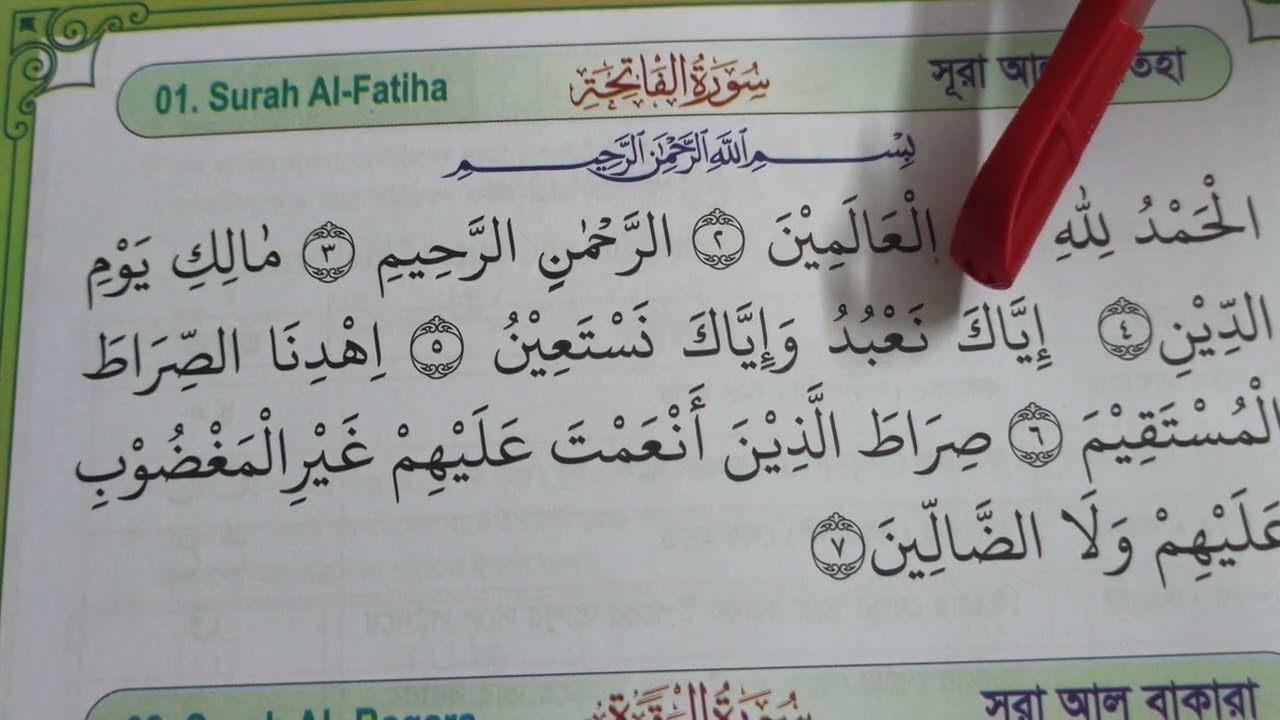 01. Surah Al-Fatiha سُورَةُ الْفَاتِحَةِ সূরা
بِسْمِ اللَّهِ الرَّحْمَٰنِ الرَّحِيمِ
الْحَمْدُ لِلّٰهِ الْعَالَمِيْنَ ﴿٢﴾ الرَّحْمٰنِ الرَّحِيمِ ﴿٣﴾ مٰالِكِ يَوْمِ
الدِّيْنِ ﴿٤﴾ إِيَّاكَ نَعْبُدُ وَإِيَّاكَ نَسْتَعِيْنُ ﴿٥﴾ اِهْدِنَا الصِّرَاطَ
الْمُسْتَقِيْمَ ﴿٦﴾ صِرَاطَ الَّذِيْنَ أَنْعَمْتَ عَلَيْهِمْ غَيْرِالْمَغْضُوْبِ
عَلَيْهِمْ وَلَا الضَّالِّينَ ﴿٧﴾
সূরা আল বাকারা